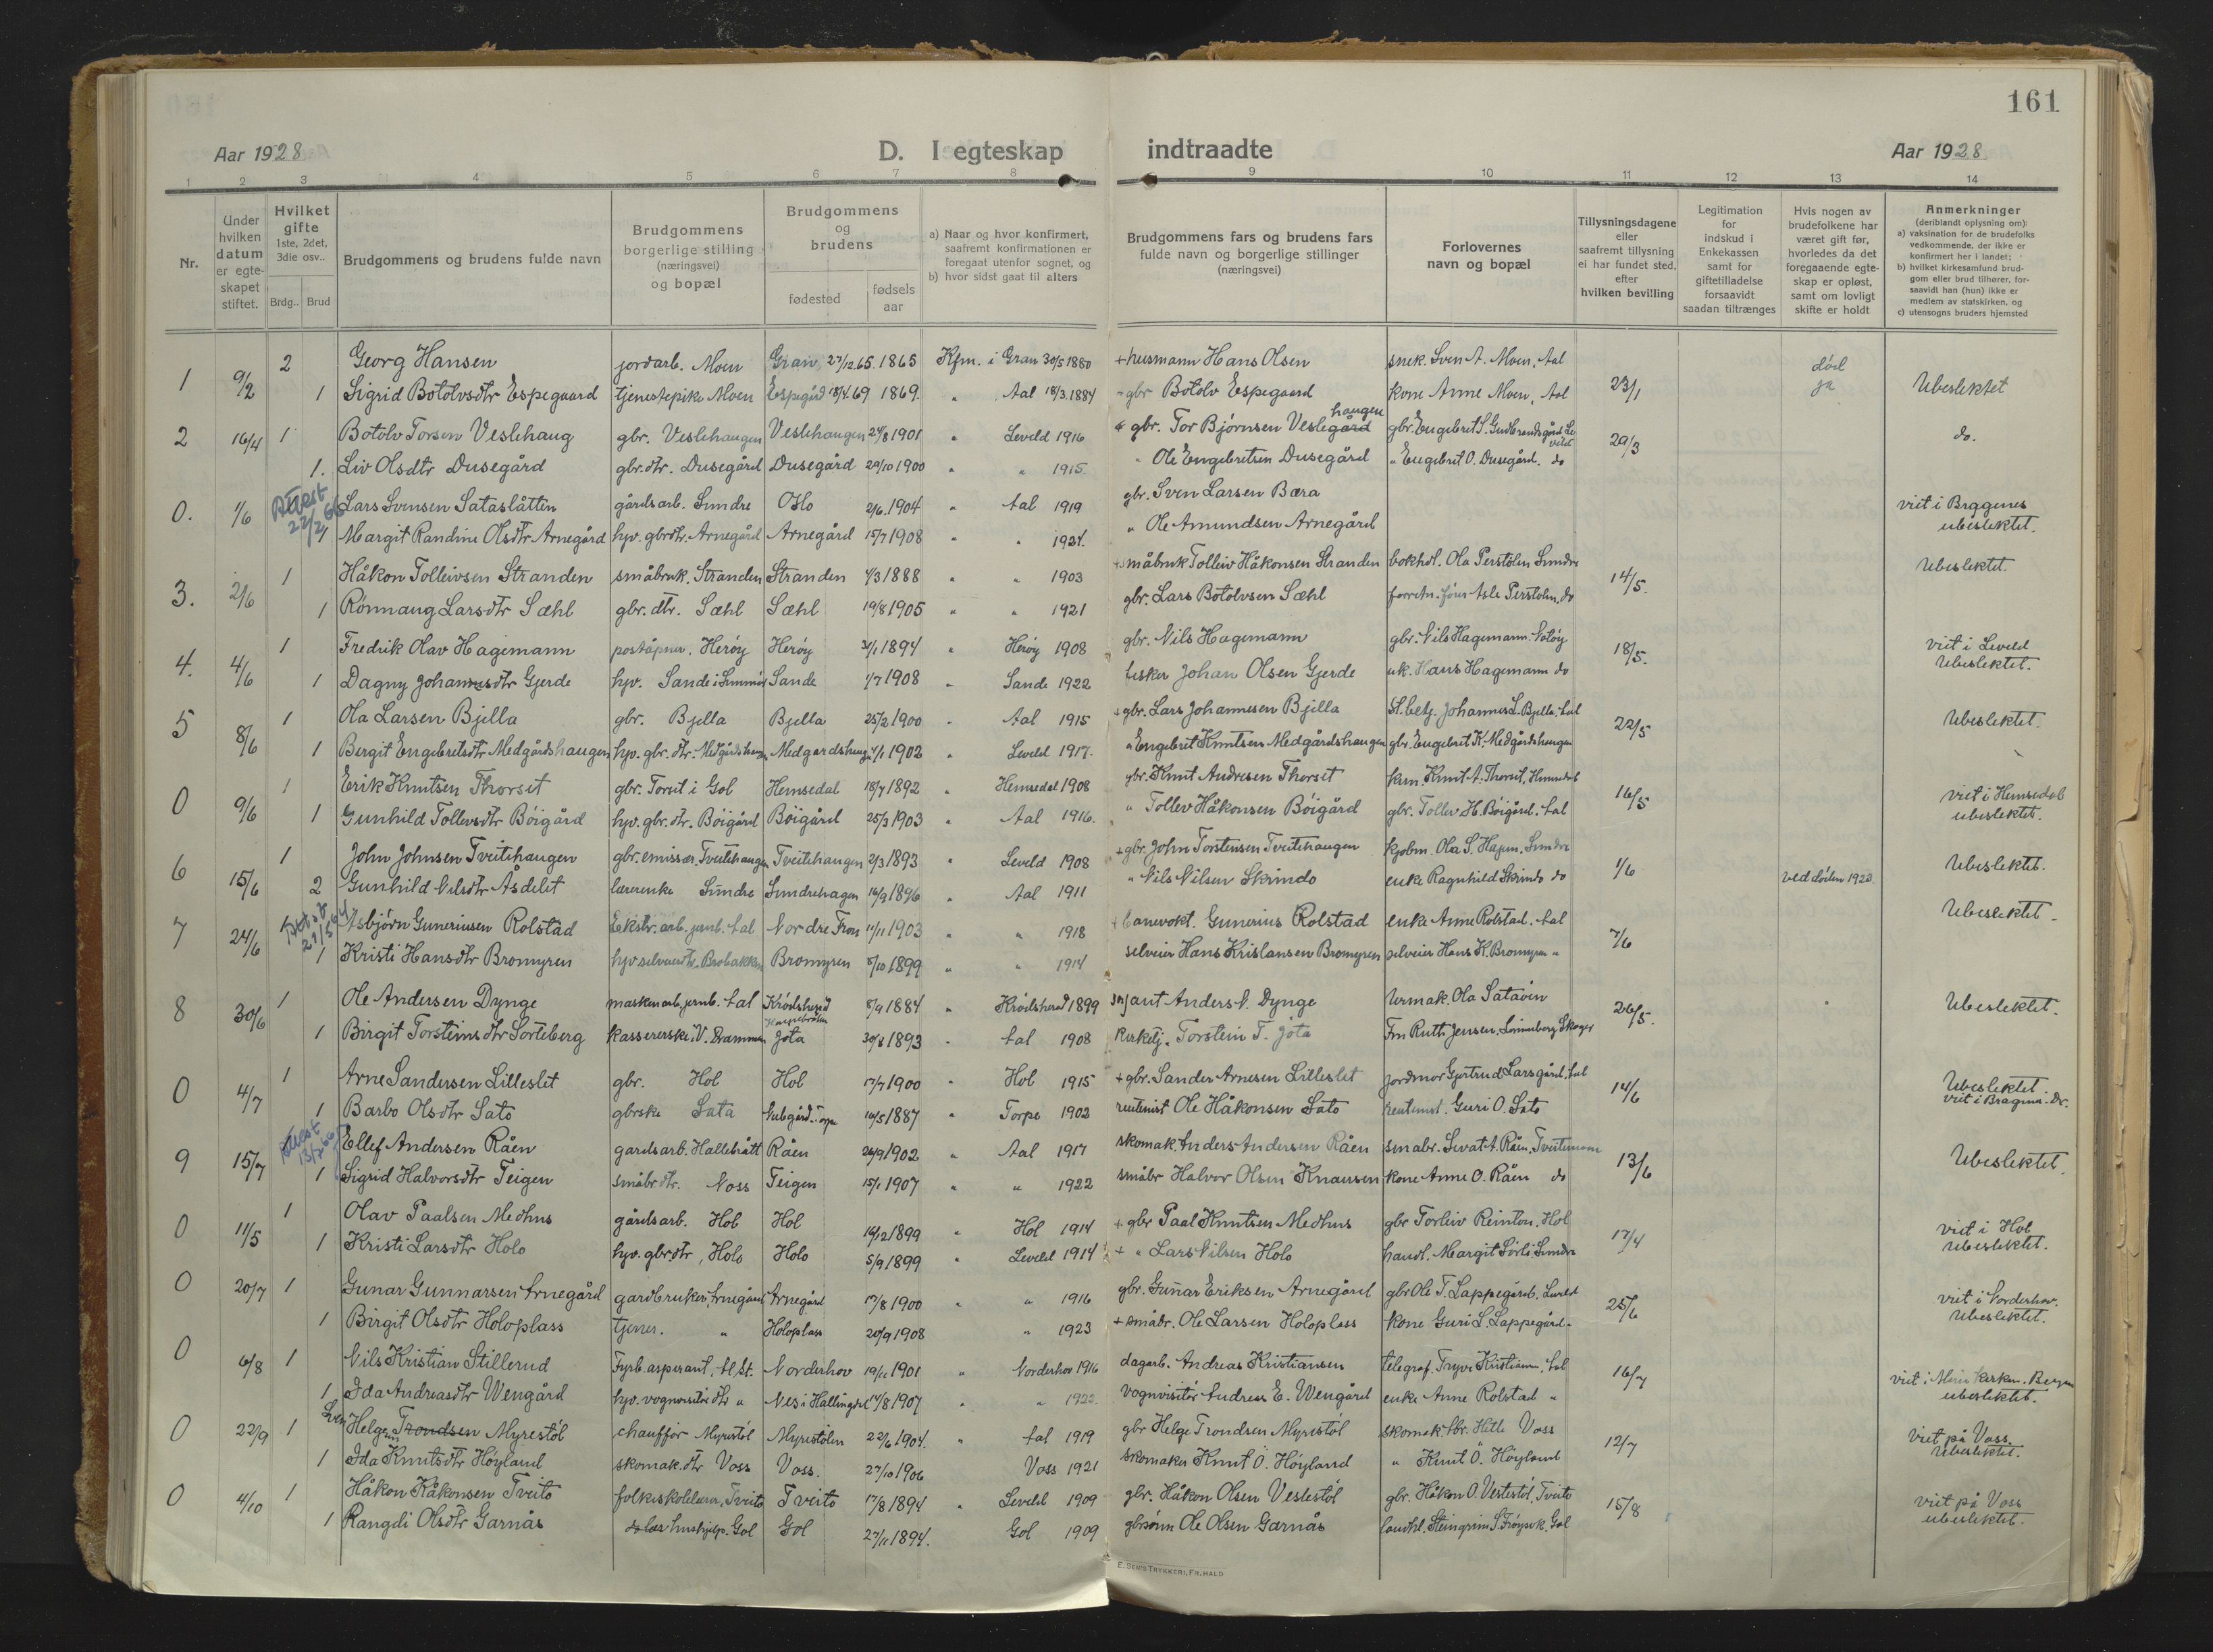 161
Aar 1928
D. I egteskap indtraadte
Aar 1928
1 2 3 4 5 6 7 8 9 10 11 12 13 14
Nr.
Under hvilken datum er egte-skapet stiftet.
Hvilket gifte 1ste, 2det, 3die osv..
Brdg.. Brud
Brudgommens og brudens fulde navn
Brudgommens borgerlige stilling (næringsvei) og bopæl
Brudgommens og brudens
fødested
fødsels aar
a) Naar og hvor konfirmert, saafremt konfirmationen er foregaat utenfor sognet, og
b) hvor sidst gaat til alters
Brudgommens fars og brudens fars fulde navn og borgerlige stillinger (næringsvei)
Forlovernes navn og bopæl
Tillysningsdagene eller saafremt tillysning ei har fundet sted, efter hvilken bevilling
Legitimation for indskud i Enkekassen samt for giftetilladelse forsaavidt saadan tiltrænges
Hvis nogen av brudefolkene har været gift før, hvorledes da det foregaaende egte-skap er opløst, samt om lovligt skifte er holdt
Anmerkninger (deriblandt oplysning om):
a) vaksination for de brudefolks vedkommende, der ikke er konfirmert her i landet;
b) hvilket kirkesamfund brud-gom eller brud tilhører, for-saavidt han (hun) ikke er medlem av statskirken, og
c) utensogns bruders hjemsted
2 Georg Hansen jordarb. Moen Gran 27/12.65 1865 Kfm. i Gran 30/5 1880 + husmann Hans Olsen snek. Sven A. Moen, Aal død
1 9/2 1 Sigrid Botolvsdtr Espegaard tjenestepike Moen Espegård 18/4.69 1869. " Aal 18/3.1884 gbr Botolv Espegaard kone Anne Moen, Aal 23/1 ja Ubeslektet
2 16/4 1 Botolv Torsen Veslehaug gbr. Veslehaugen Veslehaugen 24/8 1901 " Leveld 1916 gbr. Tor Bjørnsen Veslegård haugen gbr. Engebrit S. Gudbrandsgård Le-veld 29/3 do.
1. Liv Olsdtr Dusegård gbr.dtr. Dusegård Dusegård 29/10 1900 " " 1915. " Ole Engebretsen Dusegård " Engebrit O. Dusegård. do
0. 1/6 Attest 22/2 66 Lars Svensen Sataslåtten gårdsarb. Sundre Oslo 2/6.1904 " Aal 1919 gbr. Sven Larsen Bæra viet i Bragenes
Margit Randine Olsdtr Arnegård hjv. gbrdtr. Arnegård Arnegård 15/7 1908 " " 1924. " Ole Amundsen Arnegård ubeslektet.
3. 2/6 1 Håkon Tolleivsen Stranden småbruk. Stranden Stranden 4/3 1888 " " 1903 småbruk Tolleiv Håkonsen Stranden bokhol. Ola Perstølen Sundre 14/5. Ubeslektet.
1 Rønnaug Larsdtr Sæhl gbr. dtr. Sæhl Sæhl 19/8 1905 " " 1921 gbr. Lars Botolvsen Sæhl Asle Perstolen. do
4. 4/6 1 Fredrik Olav Hagemann poståpner. Herøy Herøy 31/1 1894 " Herøy 1908 gbr. Nils Hagemann gbr. Nils Hagemann. 18/5. viet i Leveld
1 Dagny Johannesdtr Gjerde hjv. Sande i Sunnmør Sande 1/7 1908 " Sande 1922 fisker Johan Olsen Gjerde Hans Hagemann do Ubeslektet.
5 8/6 1 Ola Larsen Bjella gbr. Bjella Bjella 25/2 1900 " Aal 1915 + gbr. Lars Johannesen Bjella Johannes L. Bjella. Aal 22/5 Ubeslektet.
1 Bergit Engebretsdtr Medgårdshaugen hjv. gbr. dtr. Medgårdshaug Medgardshaug 4/1 1902 " Leveld 1917. " Engebret Knutsen Medgårdshaugen gbr. Engebret K. Medgårdshaugen
0 9/6 1 Erik Knutsen Thorset gbr. Torset i Gol Hemsedal 18/7 1892 " Hemsedal 1908 gbr. Knut Andresen Thorset Knut A. Thorset, Hemsedal 16/5 viet i Hemsedal
1 Gunhild Tollevsdtr Böigård hjv. gbr. dtr. Böigård Böigård 25/3 1903 " Aal 1916. " Tollev Håkonsen Böigård gbr. Tollev H. Böigård. Aal ubeslektet.
6 15/6 1 John Johnsen Tveitehaugen gbr. emissær. Tveitehaugen Tveitehaugen 2/3 1893 " Leveld 1908 + gbr. John Torstensen Tveitehaugen kjøbm. Ola S. Hagen, Sundre 1/6 Ubeslektet.
2 Gunhild Nilsdtr Åsdelet lærerenke Sundre Sundrehagen 14/9 1896 " Aal 1911 " Nils Nilsen Skrindo enke Ragnhild Skrindo do ved døden 1922
7 24/6 Attest Asbjørn Guneriusen Rolstad Ekstr. arb. jernb. Aal Nordre Fron 11/11 1903 " " 1918 + banevokt. Gunerius Rolstad enke Anne Rolstad. Aal 7/6 Ubeslektet.
1 Kristi Hansdtr Bromyren hjv. selveierdtr. Brobakken Bromyren 5/10 1899 " " 1914 selveier Hans Kristansen Bromyren selveier Hans K. Bromyren "
8 30/6 1 Ole Andersen Dynge maskenarb. jernb. Aal Krødsherad 8/9 1884 " Krødsherad 1899 Anders N. Dynge Urmak. Ola Sataøen 26/5. Ubeslektet.
1 Birgit Torsteinsdtr Sorteberg kassererske, V. Drammen Jota 30/8 1893 " Aal 1908 Kirketj. Torstein T. Jota Frn Ruth Jensen. Skoger
0 4/7 1 Arne Sandersen Lilleslet gbr. Hol Hol 17/7 1900 " Hol 1915 + gbr. Sander Arnesen Lilleslet jordmor Gjertrud Larsgård. Aal 14/6 Ubeslektet.
1 Barbo Olsdtr Sato gbrske Sata Nubgård. Torpe 10/5 1887 " Torpe 1902 rentenist Ole Håkonsen Sato rentenist. Guri O. Sato viet i Bragenes. Dr.
9 15/7 Attest Ellef Andersen Råen gardsarb. Hallebråtl Råen 24/9 1902 " Aal 1917 skomak Anders Andersen Råen smabr. Sevat A. Råen, 13/6 Ubeslektet
1 Sigrid Halvorsdtr Teigen småbr dtr. Noss Teigen 15/1 1907 " " 1922 småbr Halvor Olsen Knausen kone Anne O. Råen do
0 11/5 1 Olav Paalsen Medhus gårdsarb. Hol Hol 14/12 1899 " Hol 1914 + gbr Paal Knutsen Medhus gbr Torleiv Reinton. Hol 17/4 viet i Hol
1 Kristi Larsdtr Holo hjv. gbrdtr, Holo Holo 5/9 1899 " Leveld 1914 + " Lars Nilsen Holo handl. Margit Sørli. Sundre ubeslektet.
0 20/7 1 Gunar Gunnarsen Arnegård gardbruker, Arnegård Arnegård 17/8 1900 " " 1916 gbr. Gunar Eriksen Arnegård gbr Ole T. Lappegård. Leveld 25/6 viet i Norderhov.
1 Birgit Olsdtr Holoplass tjener. " Holoplass 20/9 1908 " 1923 + småbr. Ole Larsen Holoplass kone Guri L. Lappegård. Ubeslektet.
0 6/8 1 Nils Kristian Stillerud Fyrb. asperant, Ål St. Norderhov 19/11 1901 " Norderhov 1916 dagarb. Andreas Kristiansen telegraf. Trygve Kristiansen, Aal 16/7 viet i Bergen
1 Ida Andreasdtr Wengård hjv. vognvisitør dtr " Nes i Hallingdal 14/8 1907 " " 1922. vognvisitör Andreas E. Wengård enke Anne Rolstad " ubeslektet.
0 22/9 1 Sven Helgesen Trondsen Myrestøl chauffør Myrestøl Myrestölen 22/6 1904. " Aal 1919 gbr Helge Trondsen Myrestøl skomak. Voss 12/7 viet på Voss.
1 Ida Knutsdtr Höyland skomak. dtr Voss Voss. 27/10 1906 Voss 1921 skomaker Knut Ö. Höyland " Knut Ö. Höyland Ubeslektet.
0 4/10 1 Håkon Håkonsen Tveito folkeskolelærer, Tveito Tveito 17/8 1894 " Leveld 1909 gbr. Håkon Olsen Veslestöl gbr. Håkon O. Veslestöl, Tveito 15/8 viet på Voss
1 Rangdi Olsdtr Garnås Gol Gol 27/11 1894. Gol 1909 Ole Olsen Garnås Steingrim S. Gol ubeslektet.
E. SEM'S TRYKKERI, FR.HALD